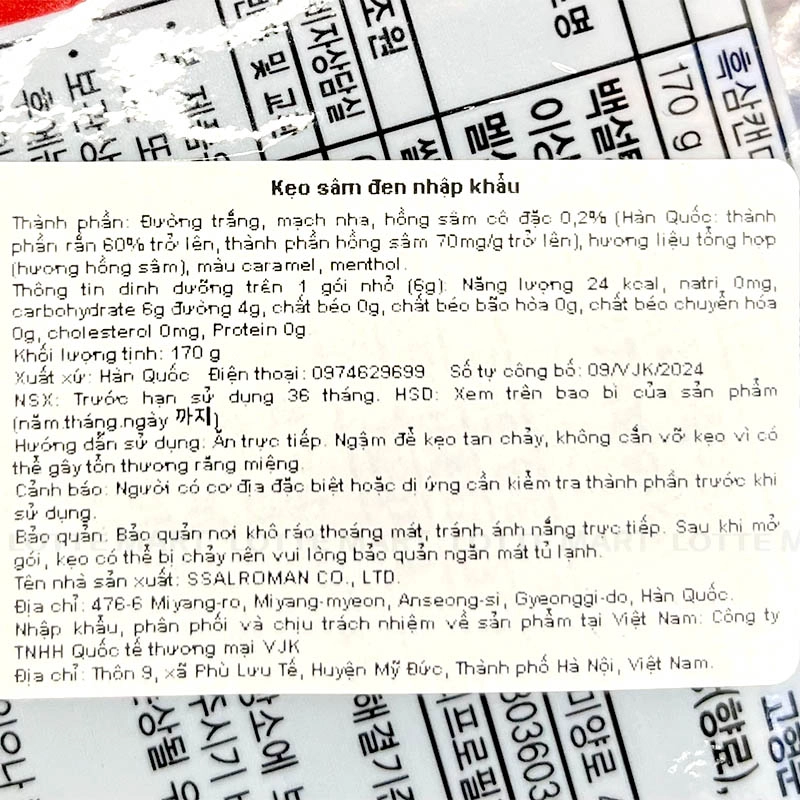 Kẹo sâm đen nhập khẩu
Thành phần: Đường trắng, mạch nha, hồng sâm cô đặc 0,2% (Hàn Quốc: thành
phần rắn 60% trở lên, thành phần hồng sâm 70mg/g trở lên), hương liệu tổng hợp
(hương hồng sâm), màu caramel, menthol.
Thông tin dinh dưỡng trên 1 gói nhỏ (6g): Năng lượng 24 kcal, natri 0mg,
carbohydrate 6g đường 4g, chất béo 0g, chất béo bão hòa 0g, chất béo chuyển hóa
0g, cholesterol 0mg, Protein 0g
Khối lượng tịnh: 170 g
Xuất xứ: Hàn Quốc Điện thoại: 0974629699 Số tự công bố: 09/VJK/2024
NSX: Trước hạn sử dụng 36 tháng. HSD: Xem trên bao bì của sản phẩm
(năm.tháng.ngày 까지)
Hướng dẫn sử dụng: Ăn trực tiếp. Ngậm để kẹo tan chảy, không cắn vỡ kẹo vì có
thể gây tổn thương răng miệng.
Cảnh báo: Người có cơ địa đặc biệt hoặc dị ứng cần kiểm tra thành phần trước khi
sử dụng.
Bảo quản: Bảo quản nơi khô ráo thoáng mát, tránh ánh nắng trực tiếp. Sau khi mở
gói, kẹo có thể bị chảy nên vui lòng bảo quản ngăn mát tủ lạnh.
Tên nhà sản xuất: SSALROMAN CO., LTD.
Địa chỉ: 476-6 Miyang-ro, Miyang-myeon, Anseong-si, Gyeonggi-do, Hàn Quốc.
Nhập khẩu, phân phối và chịu trách nhiệm về sản phẩm tại Việt Nam: Công ty
TNHH Quốc tế thương mại VJK
Địa chỉ: Thôn 9, xã Phù Lưu Tế, Huyện Mỹ Đức, Thành phố Hà Nội, Việt Nam.
흑삼캔디
170 g
백설탕
이상
멜
쌀
조원
자상담실
및 교
303603
미양로